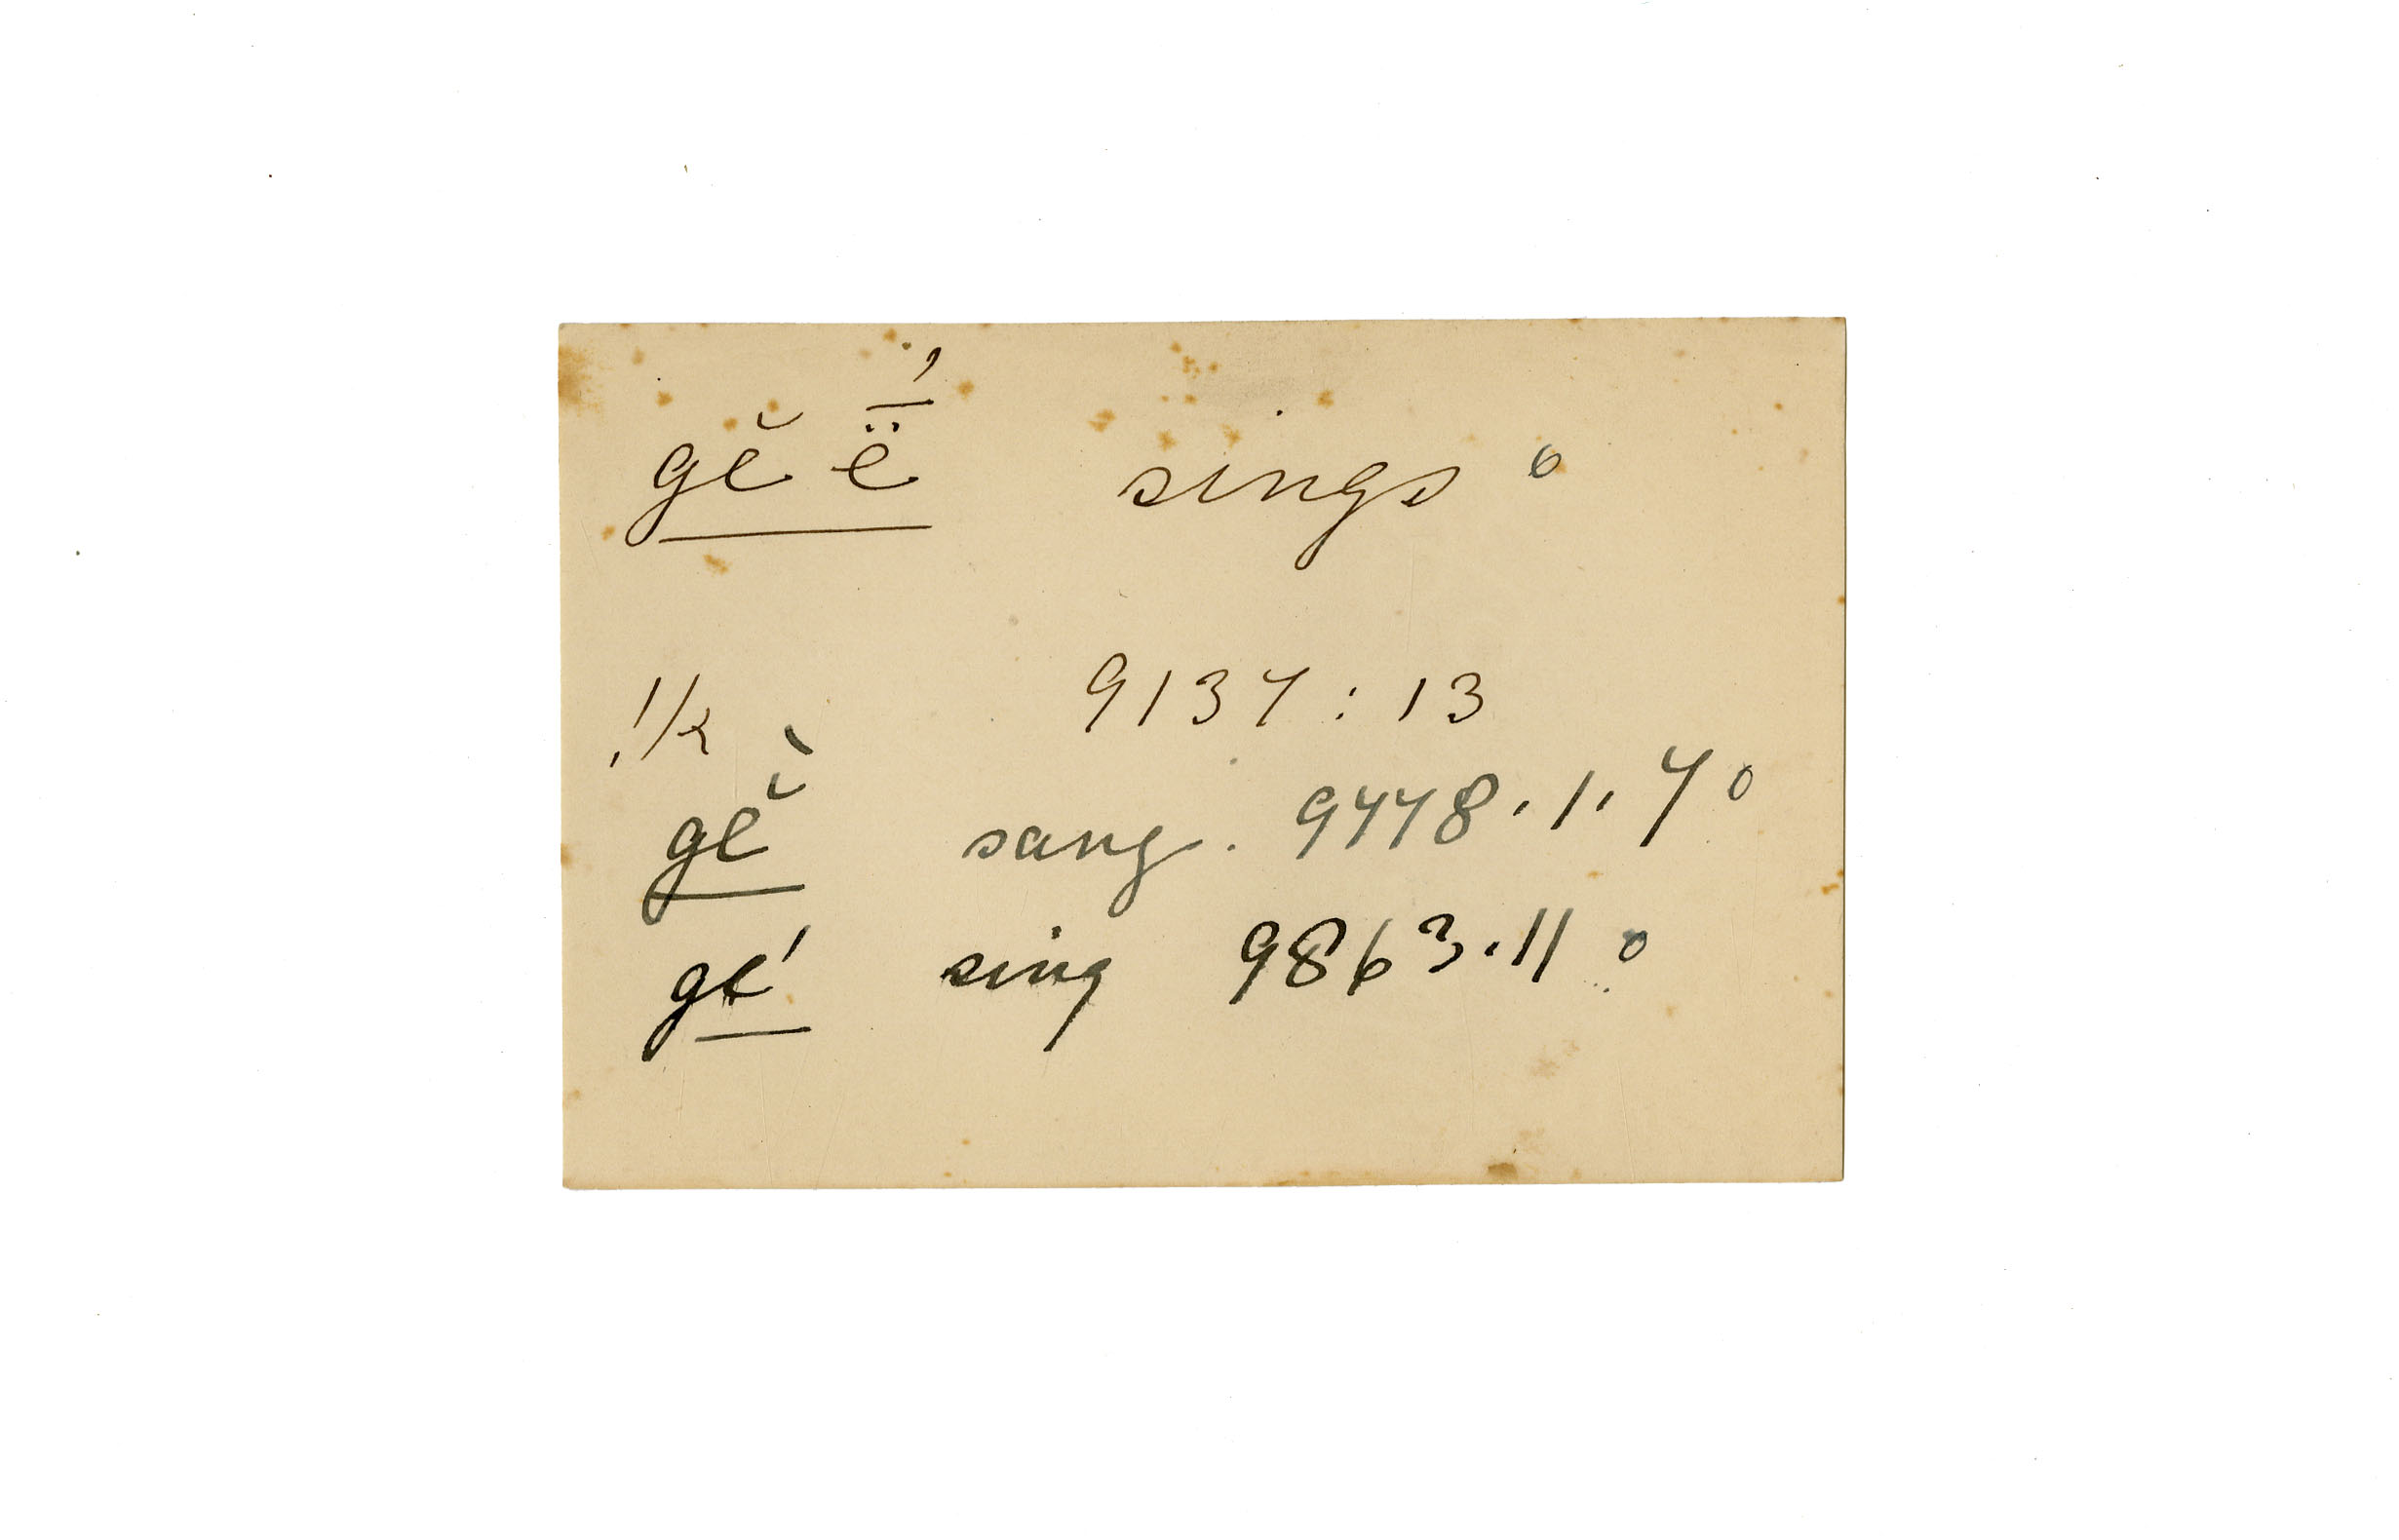 gĕ ë̄́ sings o
!/k 9137 : 13
gĕ̀ sang. 9778.1.7 o
gé sing 9863.11 o